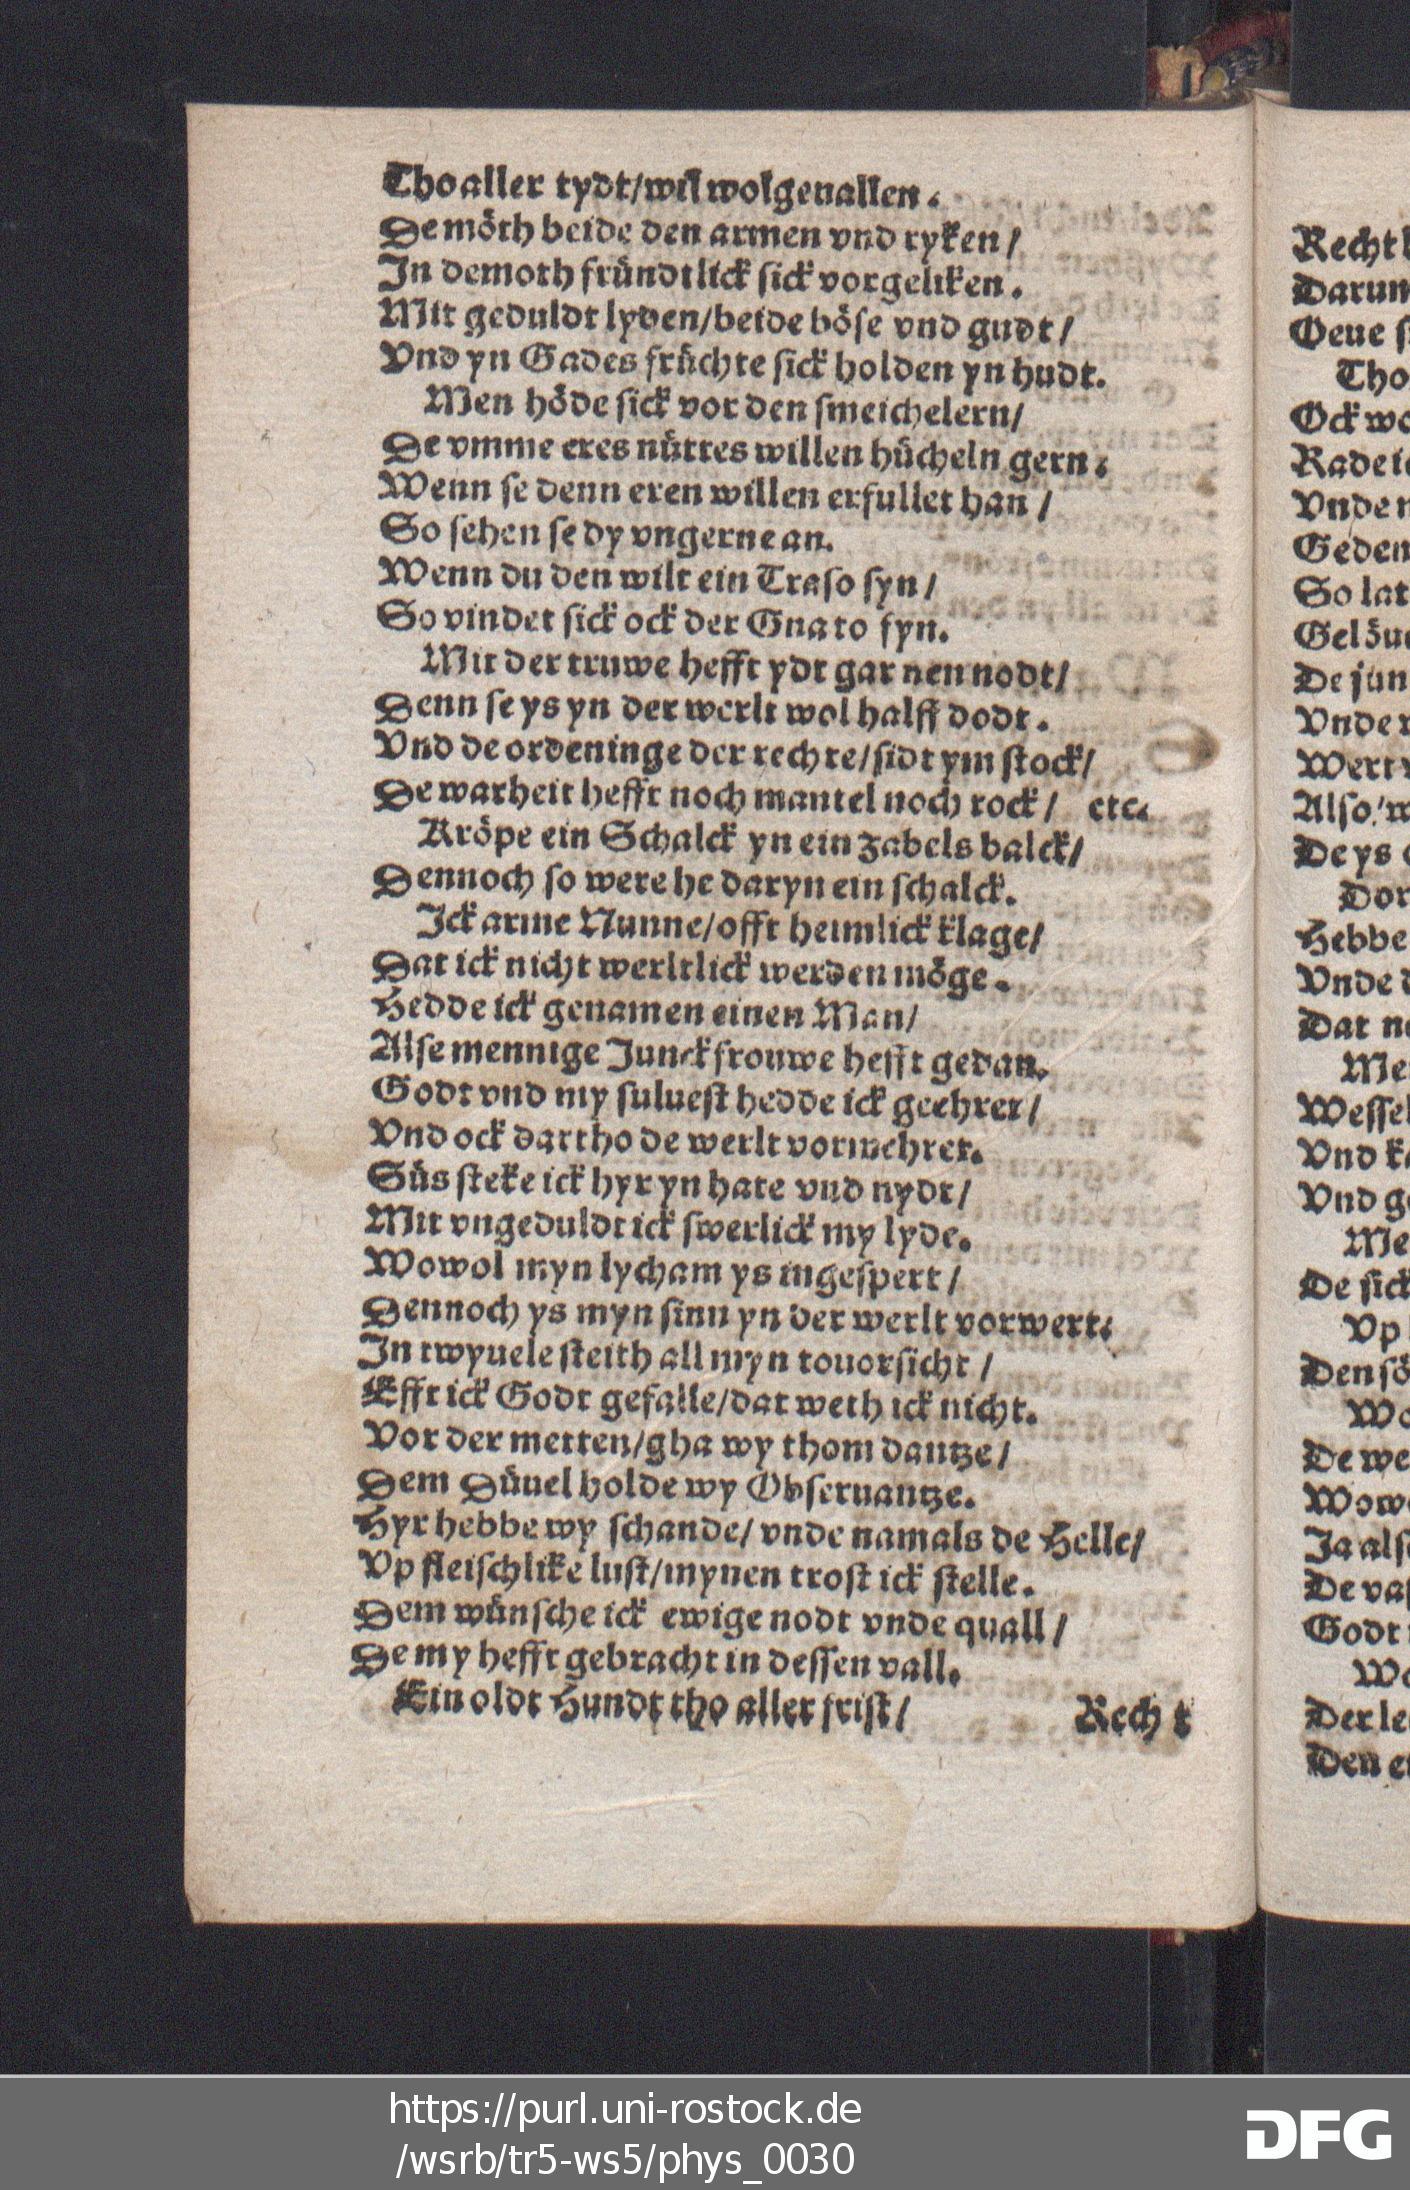 Tho aller tydt/wil wolgeuallen.
De möth beide den armen vnd ryken/
In demoth fründtlick sick vorgeliken.
Mit geduldt lyden/beide böse vnd gudt/
Vnd yn Gades früchte sick holden yn hudt.
Men höde sick vor den smeichelern/
De vmme eres nüttes willen hücheln gern.
Wenn se denn eren willen erfullet han/
So sehen se dy vngerne an.
Wenn du den wilt ein Traso syn/
So vindet sick ock der Gnato fyn.
Mit der truwe hefft ydt gar nen nodt/
Denn se ys yn der werlt wol halff dodt.
Vnd de ordeninge der rechte/sidt ym stock/
De warheit hefft noch mantel noch rock/ etc.
Kröpe ein Schalck yn ein zabels balck/
Dennoch so were he daryn ein schalck.
Ick arme Nunne/offt heimlick klage/
Dat ick nicht werltlick werden möge.
Hedde ick genamen einen Man/
Alse mennige Junckfrouwe hefft gedan.
Godt vnd my suluest hedde ick geehret/
Vnd ock dartho de werlt vormehret.
Süs steke ick hyr yn hate vnd nydt/
Mit vngeduldt ick swerlick my lyde.
Wowol myn lycham ys ingespert/
Dennoch ys myn sinn yn der werlt vorwert.
In twyuele steith all myn touorsicht/
Efft ick Godt gefalle/dat weth ick nicht.
Vor der metten/gha wy thom dantze/
Dem Düuel holde wy Obseruantze.
Hyr hebbe wy schande/vnde namals de Helle/
Vp fleischlike lust/mynen trost ick stelle.
Dem wünsche ick ewige nodt vnde quall/
De my hefft gebracht in dessen vall.
Ein oldt Hundt tho aller frist/ Recht
Darum
Oeue
Tho
Ock
Rade
Vnde
Geden
So lat
De jun
Vnde
Wert
Also/
De ys
Dor
Hebbe
Vnde
Dat
Me
Vnd
Vnd
Me
De sick
Vp
Den
De
Ja
De
Godt
Der
Den
https://purl.uni-rostock.de
/wsrb/tr5-ws5/phys_0030
DFG